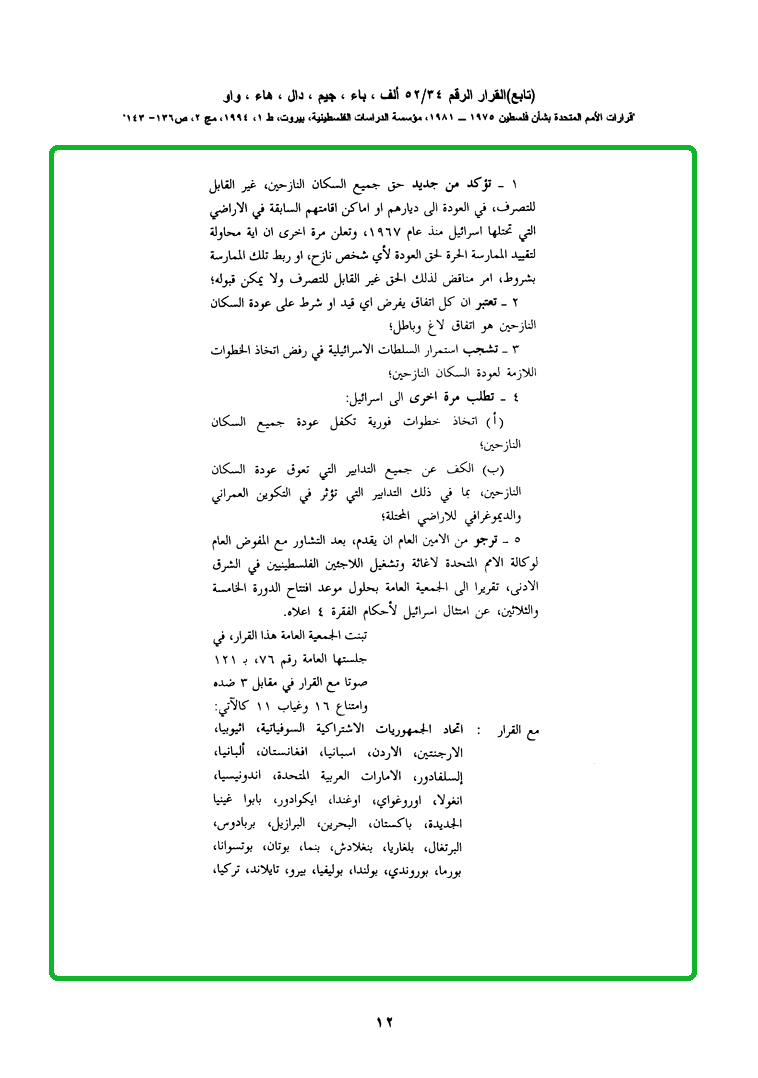 (تابع)القرار الرقم ٥٢/٣٤ ألف ، باء ، جيم ، دال ، هاء ، واو
"قرارات الأمم المتحدة بشأن فلسطين ١٩٧٥ ــ ١٩٨١، مؤسسة الدراسات الفلسطينية، بيروت، ط ١، ١٩٩٤، مج ٢، ص١٣٦- ١٤٣"
١ ـ تؤكد من جديد حق جميع السكان النازحين، غير القابل
للتصرف، في العودة الى ديارهم او اماكن اقامتهم السابقة في الاراضي
التي تحتلها اسرائيل منذ عام ١٩٦٧، وتعلن مرة اخرى ان اية محاولة
لتقييد الممارسة الحرة لحق العودة لأي شخص نازح، او ربط تلك الممارسة
بشروط، امر مناقض لذلك الحق غير القابل للتصرف ولا يمكن قبوله؛
٢ ـ تعتبر ان كل اتفاق يفرض اي قيد او شرط على عودة السكان
النازحين هو اتفاق لاغ وباطل؛
٣ ـ تشجب استمرار السلطات الاسرائيلية في رفض اتخاذ الخطوات
اللازمة لعودة السكان النازحين؛
٤ ـ تطلب مرة اخرى الى اسرائيل:
(أ) اتخاذ خطوات فورية تكفل عودة جميع السكان
النازحين؛
(ب) الكف عن جميع التدابير التي تعوق عودة السكان
النازحين، بما في ذلك التدابير التي تؤثر في التكوين العمراني
والديموغرافي للاراضي المحتلة؛
٥ ـ ترجو من الامين العام ان يقدم، بعد التشاور مع المفوض العام
لوكالة الامم المتحدة لاغاثة وتشغيل اللاجئين الفلسطينيين في الشرق
الادنى، تقريرا الى الجمعية العامة بحلول موعد افتتاح الدورة الخامسة
والثلاثين، عن امتثال اسرائيل لأحكام الفقرة ٤ اعلاه.
تبنت الجمعية العامة هذا القرار، في
جلستها العامة رقم ٧٦، بـ ١٢١
صوتا مع القرار في مقابل ٣ ضده
وامتناع ١٦ وغياب ١١ كالآتي:
مع القرار : اتحاد الجمهوريات الاشتراكية السوفياتية، اثيوبيا،
الارجنتين، الاردن، اسبانيا، افغانستان، ألبانيا،
إلسلفادور، الامارات العربية المتحدة، اندونيسيا،
انغولا، اوروغواي، اوغندا، ايكوادور، بابوا غينيا
الجديدة، باكستان، البحرين، البرازيل، بربادوس،
البرتغال، بلغاريا، بنغلادش، بنما، بوتان، بوتسوانا،
بورما، بوروندي، بولندا، بوليفيا، بيرو، تايلاند، تركيا،
١٢